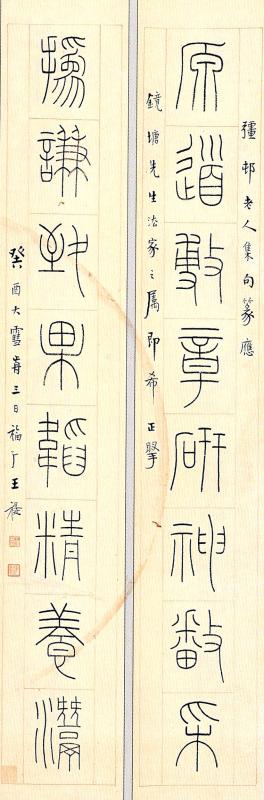 彊邨老人集句篆應
原道敷章研神播采
鏡塘先生法家之属即希 正
撝謙致果韜精養
癸酉大雪前三日福厂王禔